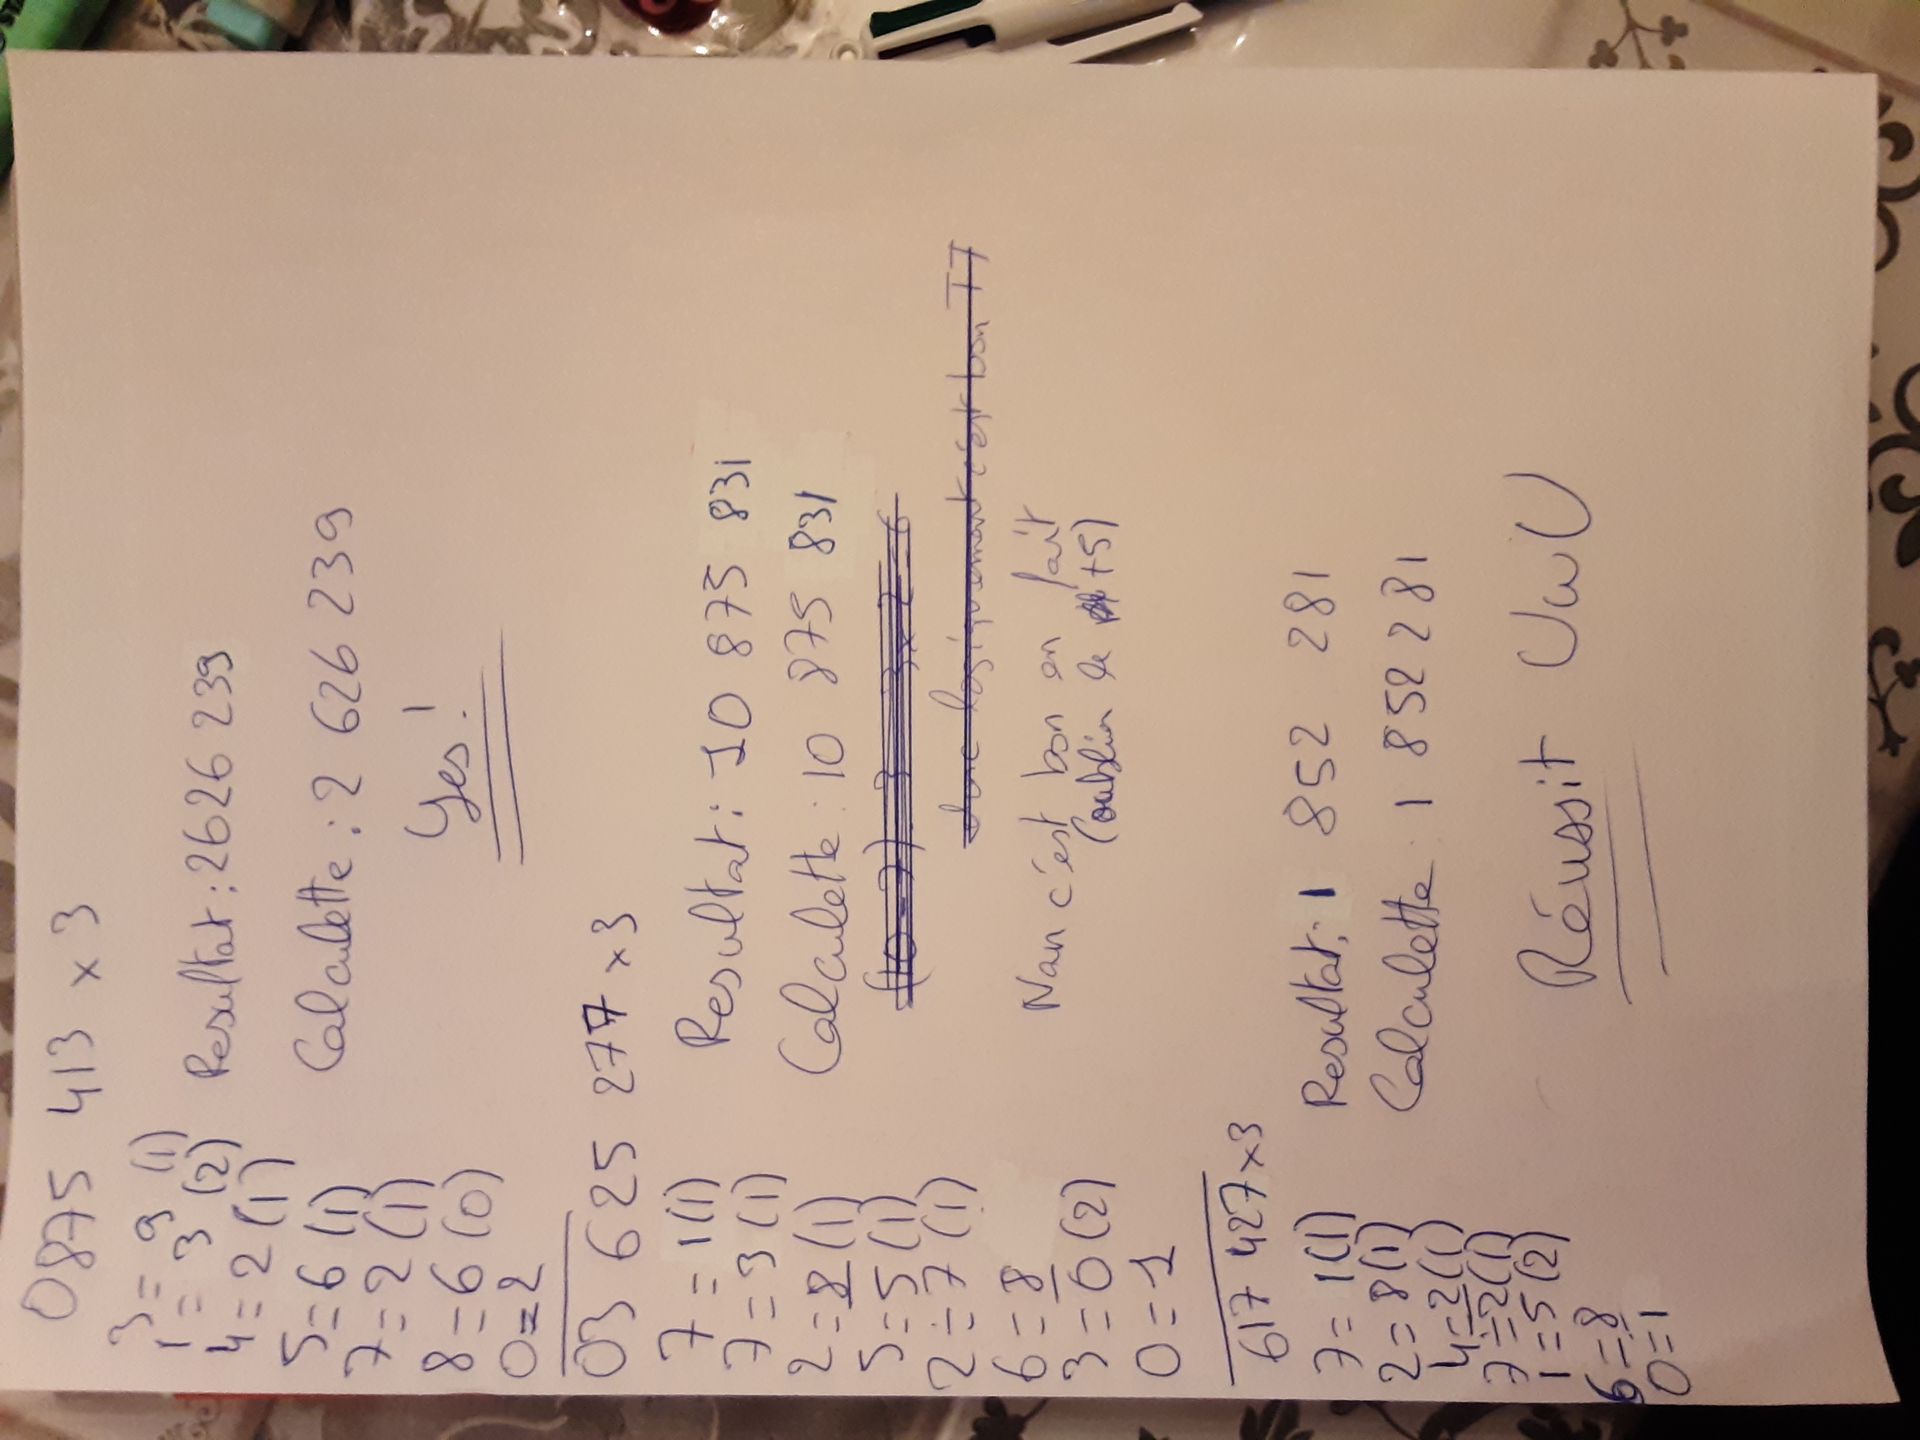 0875 413 x 3
3 = 9 (1)
1 = 3 (2)
4 = 2 (1)
5 = 6 (1)
7 = 2 (1)
8 = 6 (0)
0 = 2
Resultat : 2626 239
Calculette : 2 626 239
Yes !
03 625 277 x 3
7 = 1 (1)
7 = 3 (1)
2 = 8 (1)
5 = 5 (1)
2 = 7 (1)
6 = 8
3 = 0 (2)
0 = 1
Resultat : 10 875 831
Calculette : 10 875 831
logiquement c'est bon TT
Nan c'est bon en fait
(oublier le +5)
617 427 x 3
7 = 1 (1)
2 = 8 (1)
4 = 2 (1)
7 = 2 (1)
1 = 5 (2)
6 = 8
0 = 1
Resultat : 1 852 281
Calculette : 1 852 281
Réussit UwU